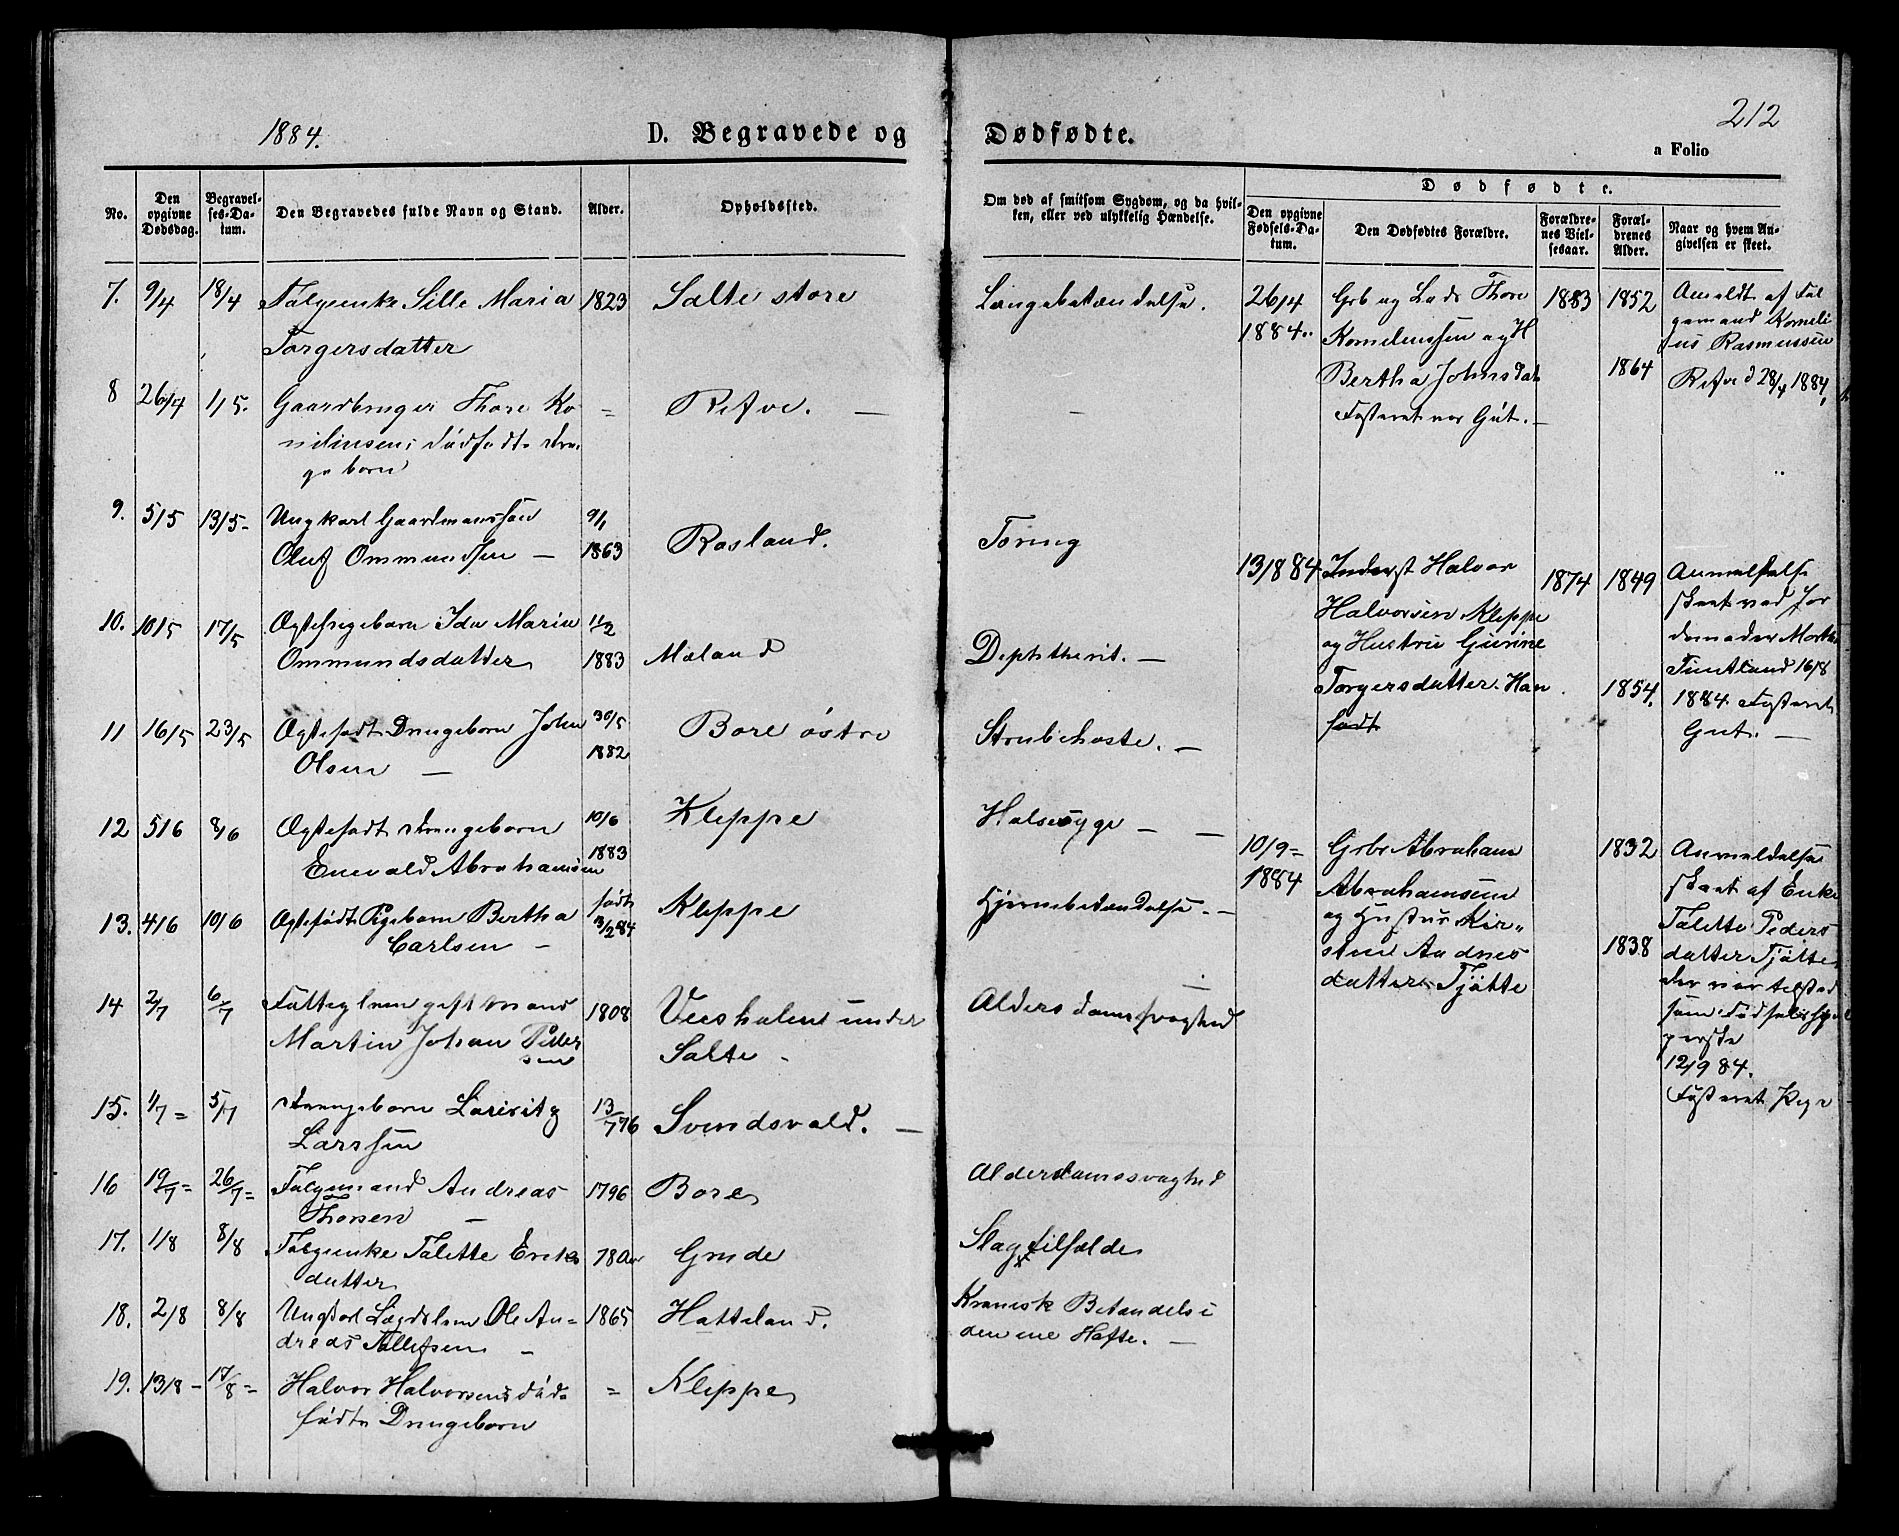 1884.
D. Begravede og
Dødfødte.
212
a Folio
No.
Den opgivne Dødsdag.
Begravelses-Datum.
Den Begravedes fulde Navn og Stand.
Alder.
Opholdssted.
Om død af smitsom Sygdom, og da hvilken, eller ved ulykkelig Hændelse.
Dødfødte.
Den opgivne Fødsels-Datum.
Den Dødfødtes Forældre.
Forældrenes Vielsesaar.
Forældrenes Alder.
Naar og hvem Angivelsen er skeet.
7. 9/4 18/4 Følgeenke Sille Maria 1823 Salte store
Torgersdatter
8 26/4 1/5. Gaardbruger Thore Ko- = Refve. —
nelinsens dødfødte drengebarn
9. 5/5 13/5- Ungkarl Gaardmanssøn 9/1
Oluf Ommundsen — 1863 Rosland.
10. 10/5 17/5 Ægtepigebarn Ida Maria 11/2
Ommundsdatter 1883 Maland
11 16/5 23/5 Ægtefødt Drengebarn John 30/5 Bore østre
Olsen — 1882
12 5/6 8/6 Ægtefødt drengebarn 10/6 Kleppe
Enevald Abrahamsen 1883
13. 4/6 10/6 Ægtefødt Pigebarn Bertha født Kleppe
Carlsen - 13/2 84
14 2/7 6/7 Fattiglem gift mand 1808 under
Martin Johan Peder Salte -
sen
15. 1/7 = 5/7 drengebarn 13/7 76 Svindsvald. —
Larssen
16 19/7 = 26/7 = Følgemand Andreas 1796 Bore
Thorsen —
17. 1/8 8/8 Følgeenke Talette Eriks 78 Aar Grude
datter
18. 2/8 8/8 Ungkarl Lægdslem Ole An= 1865 Hatteland.
dreas Tollefsen -
19. 13/8 - 17/8 = Halvor Halvorsens død- = Kleppe
fødte Drengebarn
Lungebetændelse.
—
Tæring
Diphtherit. —
Strubehoste. —
Halssyge — —
Hjernebetændelse. —
Alderdomssvaghed
Alderdomssvaghed
Slagtilfælde
Kronisk Betændelse i
den ene Hofte. —
26/4 Grb og Lods Thore 1883 1852 Anmeldt af Føl
1884.. Kornelinssen og H gemand Korneli
Bertha Johnsdat 1864 us Rasmussen
Fosteret var Gut. — Refve d 28/4 1884
13/8 84 Inderst Halvor 1874 1849 Anmeldelse
Halvorsen Kleppe skeet ved Jor
og Hustru Gurine demoder Martha
Torgersdatter. Han 1854. Tuntland 16/8
født 1884. Fosteret
Gut. —
10/9 = Grbr Abraham 1832 Anmeldelse
1884 Abrahamsen skeet af Enke
og Hustru Kir„ Talette Peders
stine Andreas 1838 datter Tjøtte
datter Tjøtte der var tilsted
som Fødselshjæl
perske
12/9 84.
Fosteret Pige